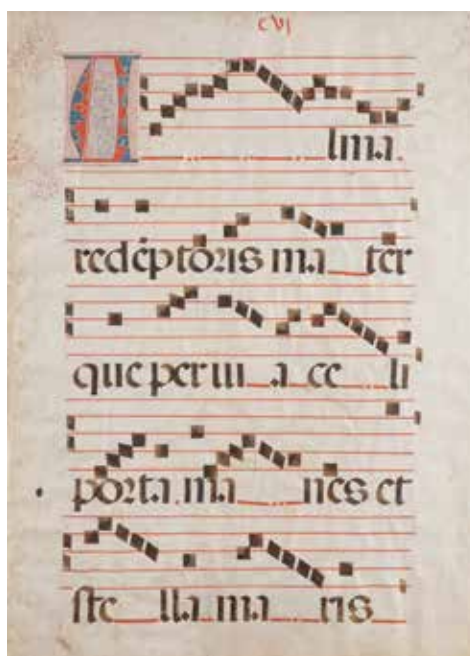 cvj
Alma
redēptoris ma ter
que per ui a ce li
porta ma nes et
ste lla ma ris